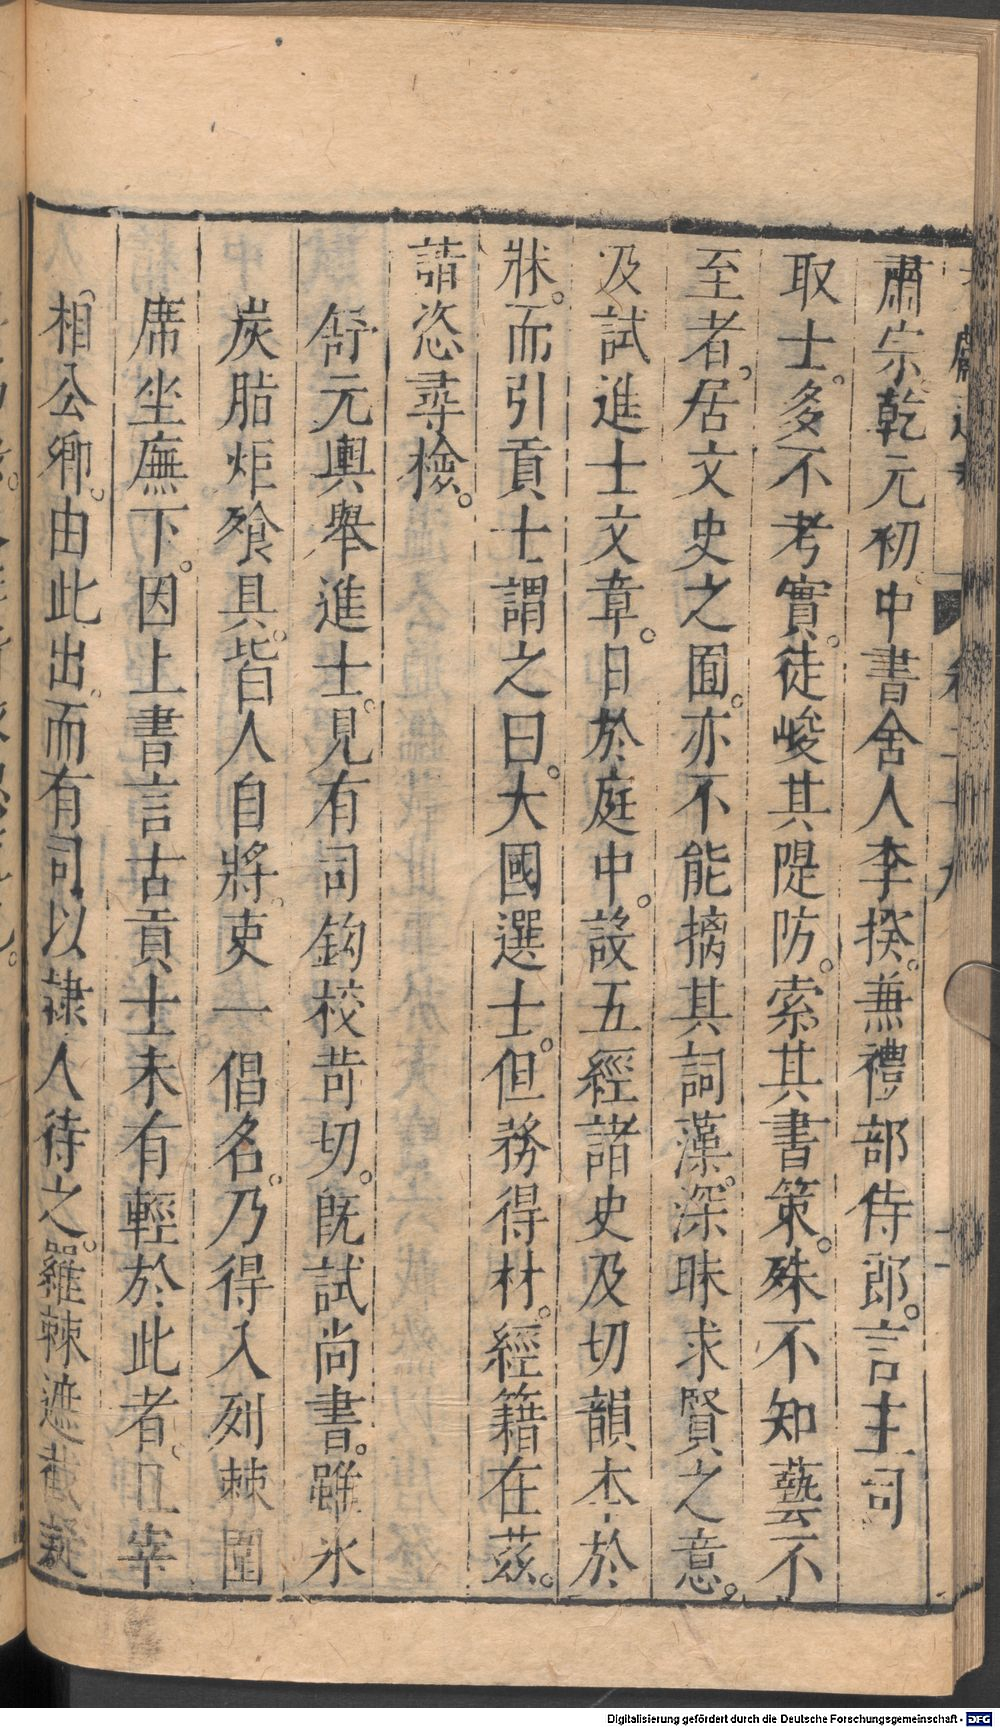 肅宗乾元初中書舍人李揆兼禮部侍郎。言主司
取士。多不考實。徒峻其隄防。索其書策。殊不知藝不
至者。居文史之囿。亦不能摛其詞藻。深昧求賢之意。
及試進士文章。日於庭中。設五經諸史及切韻本於
牀。而引貢士謂之曰。大國選士。但務得材。經籍在茲。
請恣尋檢。
舒元輿舉進士。見有司鉤校苛切。既試尚書。雖水
炭脂炬飱具。皆人自將。吏一倡名。乃得入列棘圍
席坐廡下。因上書言古貢士未有輕於此者。且宰
相公卿。由此出。而有司以隸人待之。羅棘遮截疑
Digitalisierung gefördert durch die Deutsche Forschungsgemeinschaft - DFG